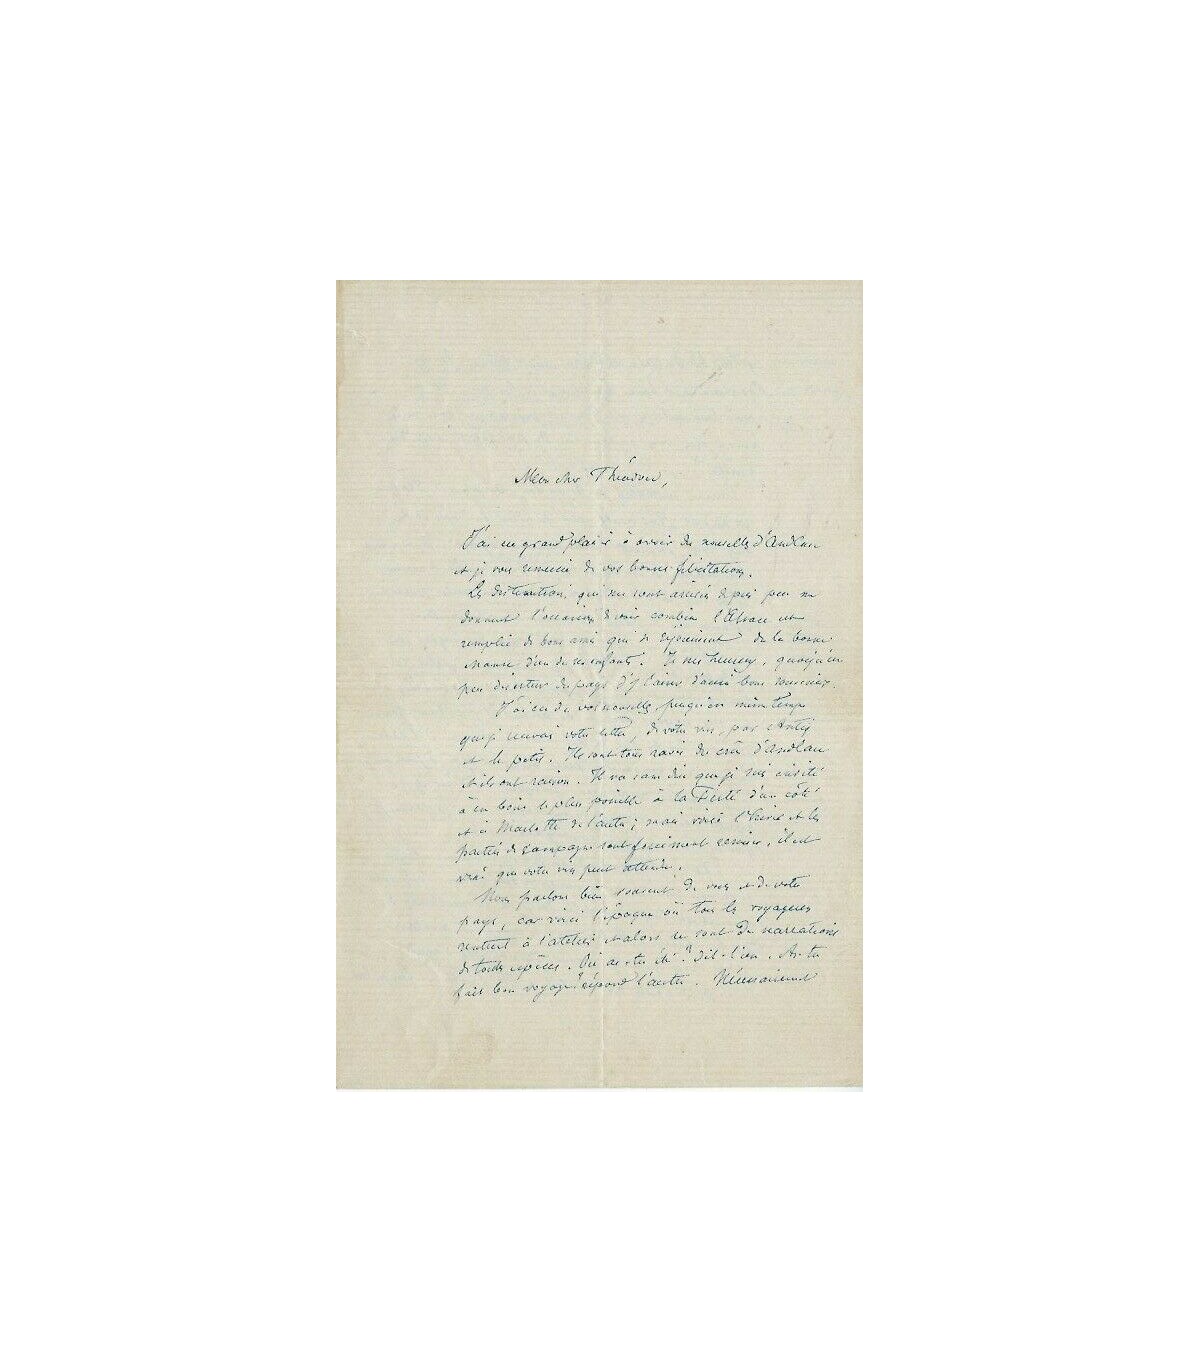 Mon cher Théodore,
J'ai eu grand plaisir à avoir des nouvelles d'Andlau
et je vous remercie de vos bonnes félicitations.
Les distinctions, qui me sont arrivées depuis peu me
donnent l'occasion de voir combien l'Alsace est
remplie de bons amis qui se réjouissent de la bonne
d'un de ses enfants. Je suis heureux, quoiqu'un
peu déserteur du pays d'y laisser d'aussi bons souvenirs.
J'ai eu de vos nouvelles, presqu'en même temps
que je recevais votre lettre, de votre vin, par
et le petit. Ils sont tous ravis du crû d'Andlau
et ils ont raison. Il va sans dire que je suis invité
à en boire le plus possible à la Ferté d'un côté
et à Marlotte de l'autre ; mais voici l'hiver et les
parties de campagne sont forcément remises, il est
vrai que votre vin peut attendre.
Nous parlons bien souvent de vous et de votre
pays, car voici l'époque où tous les voyageurs
rentrent à l'atelier et alors ce sont des narrations
de toutes espèces. Où as-tu été ? dit-l'un. As-tu
fait bon voyage ? répond l'autre. Nécessairement